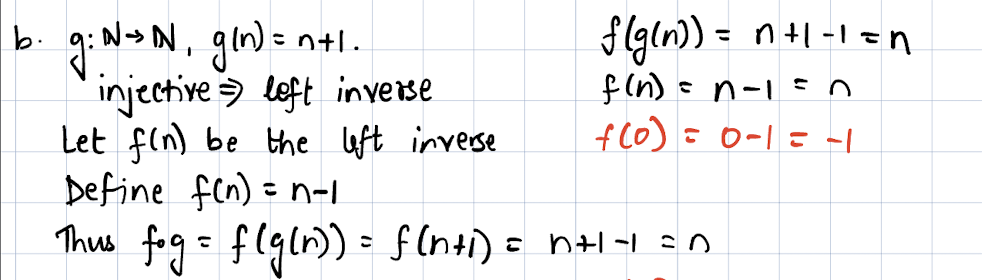 b. g: N→N, g(n) = n+1.
injective ⇒ left inverse
Let f(n) be the left inverse
Define f(n) = n-1
Thus f∘g = f(g(n)) = f(n+1) = n+1-1 = n
f(g(n)) = n+1-1 = n
f(n) = n-1 = n
f(0) = 0-1 = -1